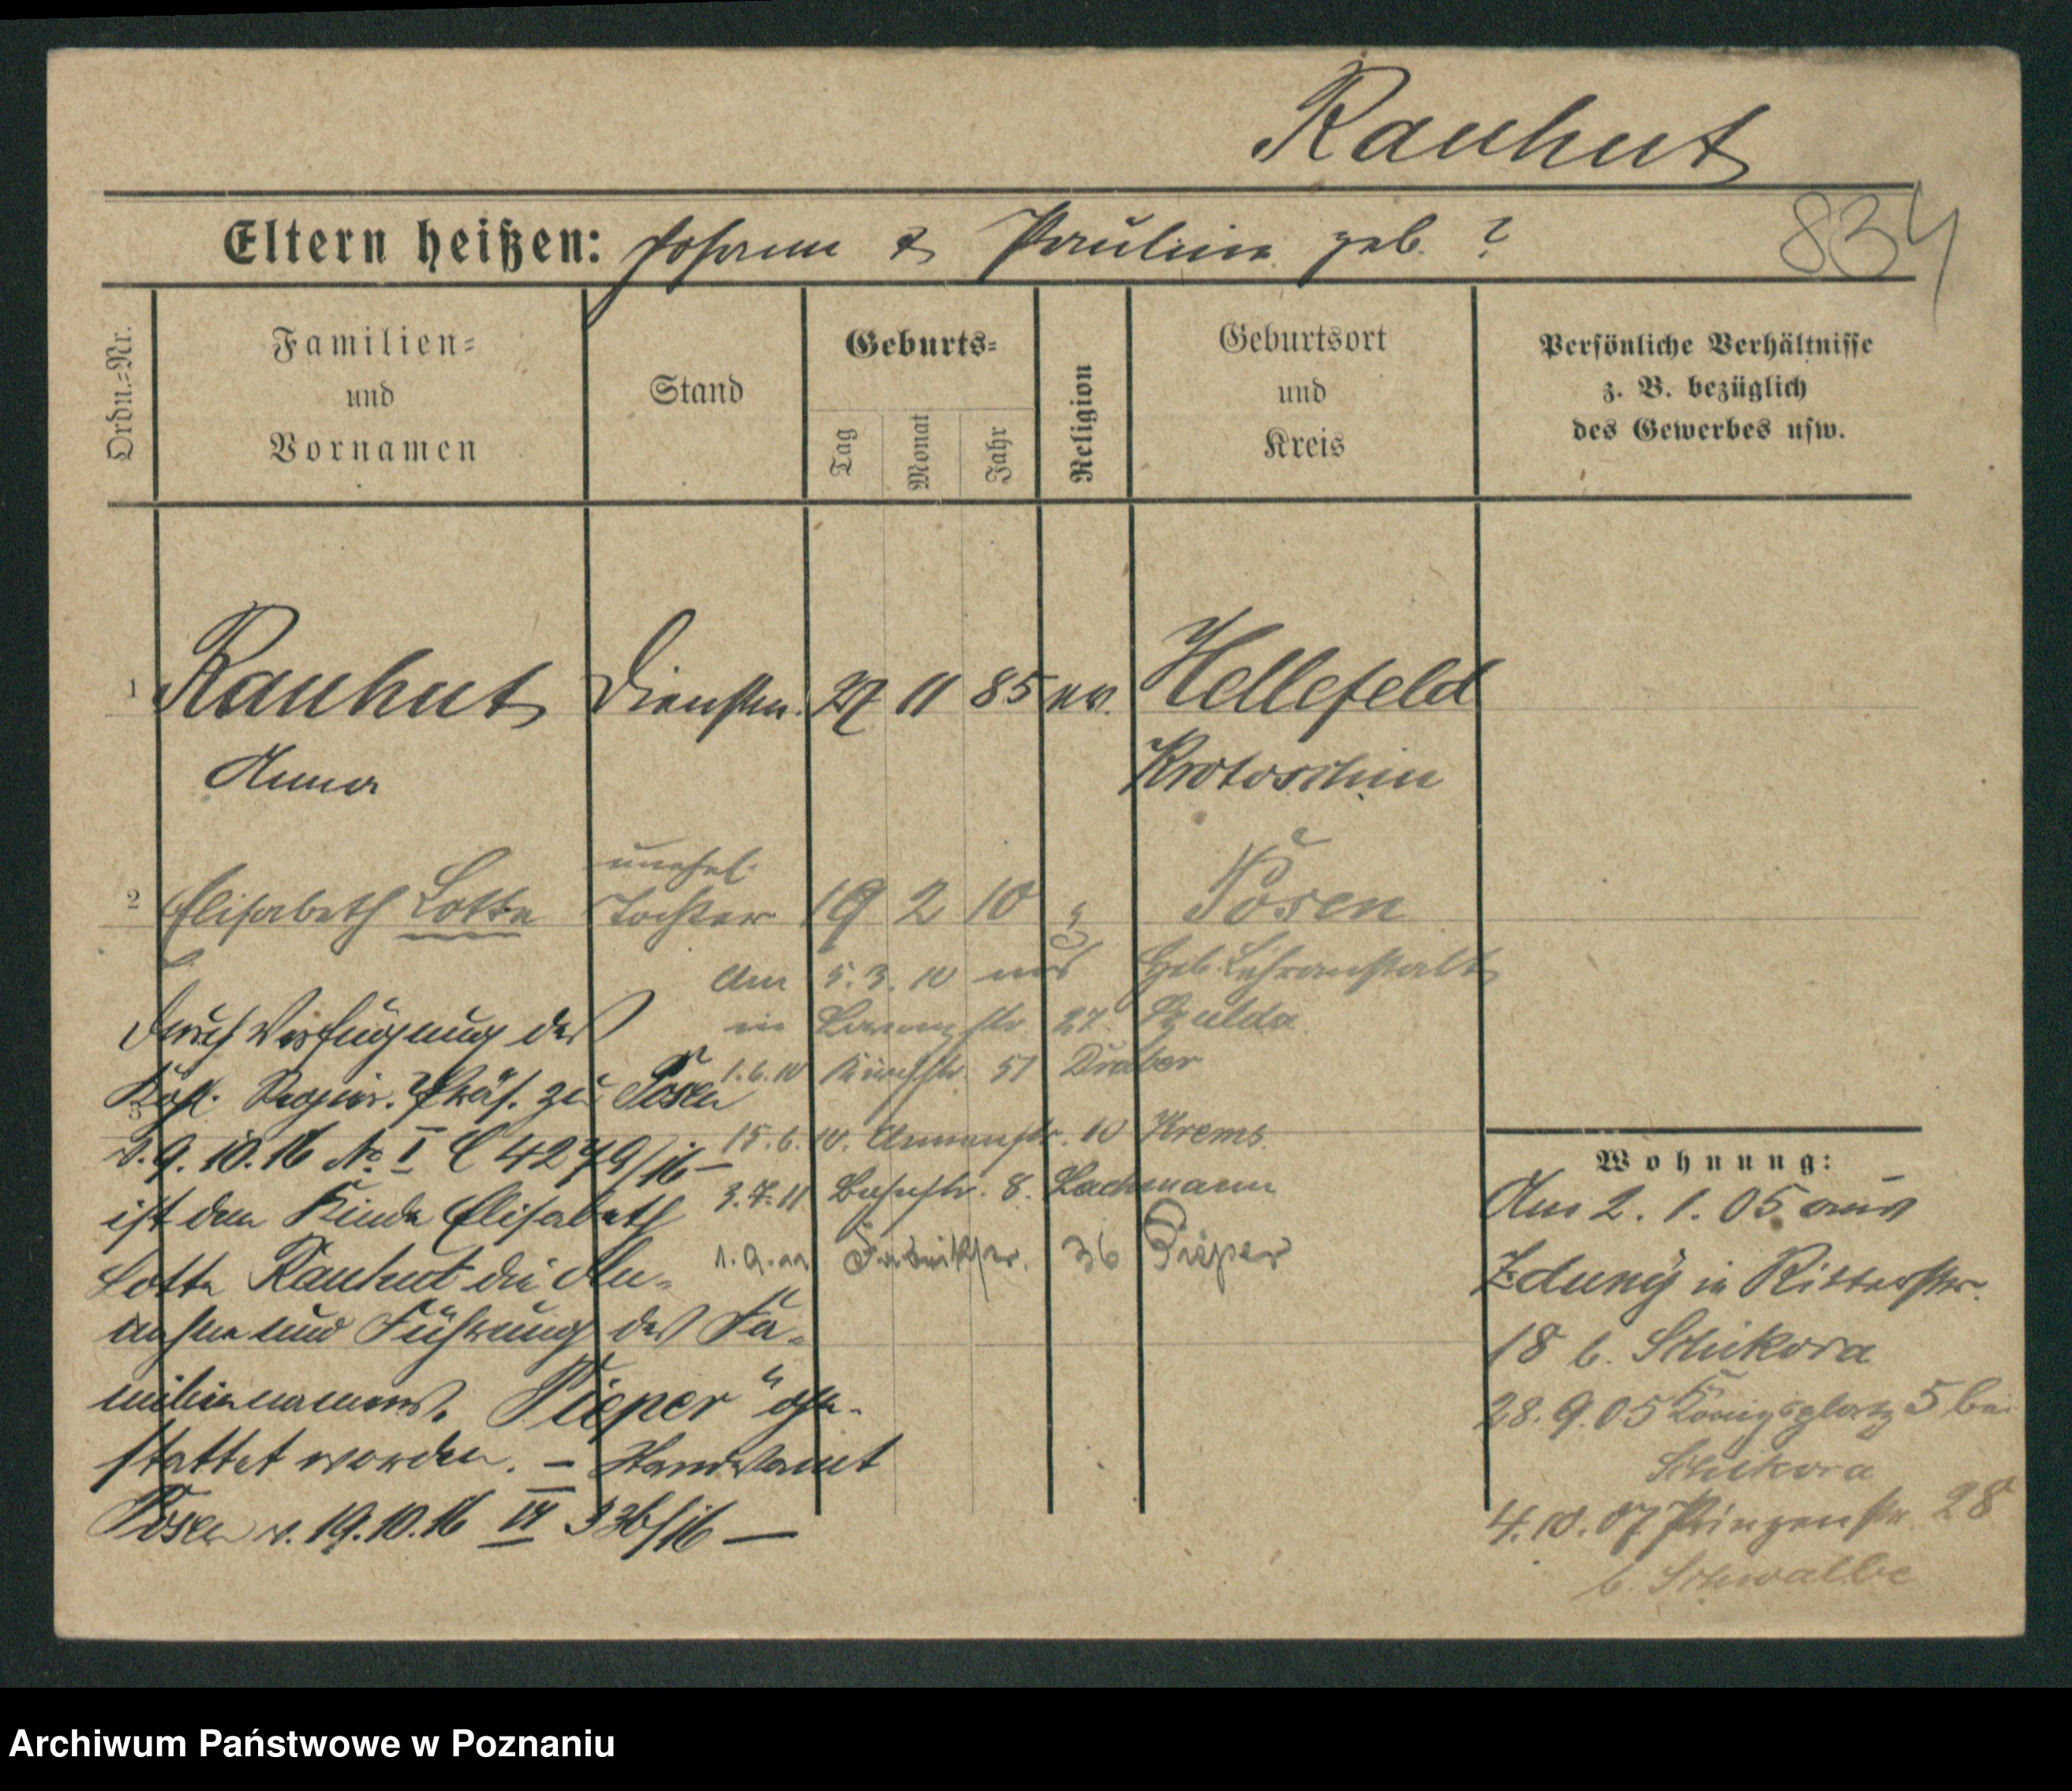 Rauhut
Eltern heißen: Johann & Pauline geb. ?
834
Ordn.=Nr.
Familien=
und
Vornamen
Stand
Geburts=
Tag
Monat
Jahr
Religion
Geburtsort
und
Kreis
Persönliche Verhältnisse
z. B. bezüglich
des Gewerbes usw.
1 Rauhut Dienstm. 27 11 85 ev. Hellefeld
Anna Krotoschin
unehel.
2 Elisabeth Lotte Tochter 19 2 10 Posen
Am 5.3.10 aus Heb. Lehranstalt
in 27. Szulda
1.6.10 51 Draber
15.6.10. Annenstr. 10 Krems
3.7.11 Bahnstr. 8. Lachmann
1.9.11 Fabrikstr. 36 Pieper
Durch Verfügung des
Kgl. Regier. Präs. zu Posen
3
v. 9.10.16 No I C 4279/16 –
ist dem Kinde Elisabeth
Lotte Rauhut die An=
nahme und Führung des Fa=
miliennamens „Pieper“ ge=
stattet worden. – Standesamt
Posen v. 19.10.16 VI 336/16 —
Wohnung:
Am 2. 1. 05 aus
Zduny in Ritterstr.
18 b. Schikora
28.9.05 Königsplatz 5 bei
Schikora
4.10.07 Prinzenstr. 28
b. Schwalbe
Archiwum Państwowe w Poznaniu